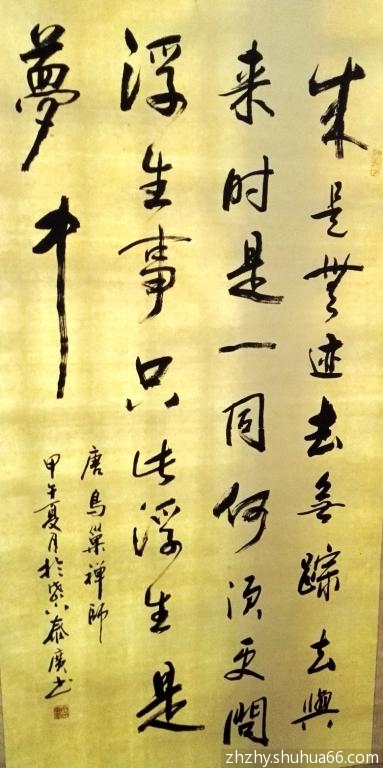 来是無迹去無踪去與
来时是一同何须更問
浮生事只此浮生是
夢中
唐鳥巢禅師
甲午夏月於泰廣书
zhzhy.shuhua66.com